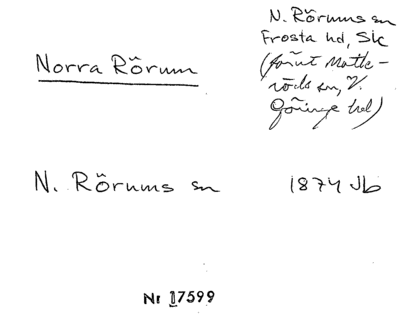 N. Rörums sn
Frosta hd, Sk
Norra Rörum
(förut Matte-
röds sn, V.
Göinge hd)
N. Rörums sn
1874 Jb
Nr 17599